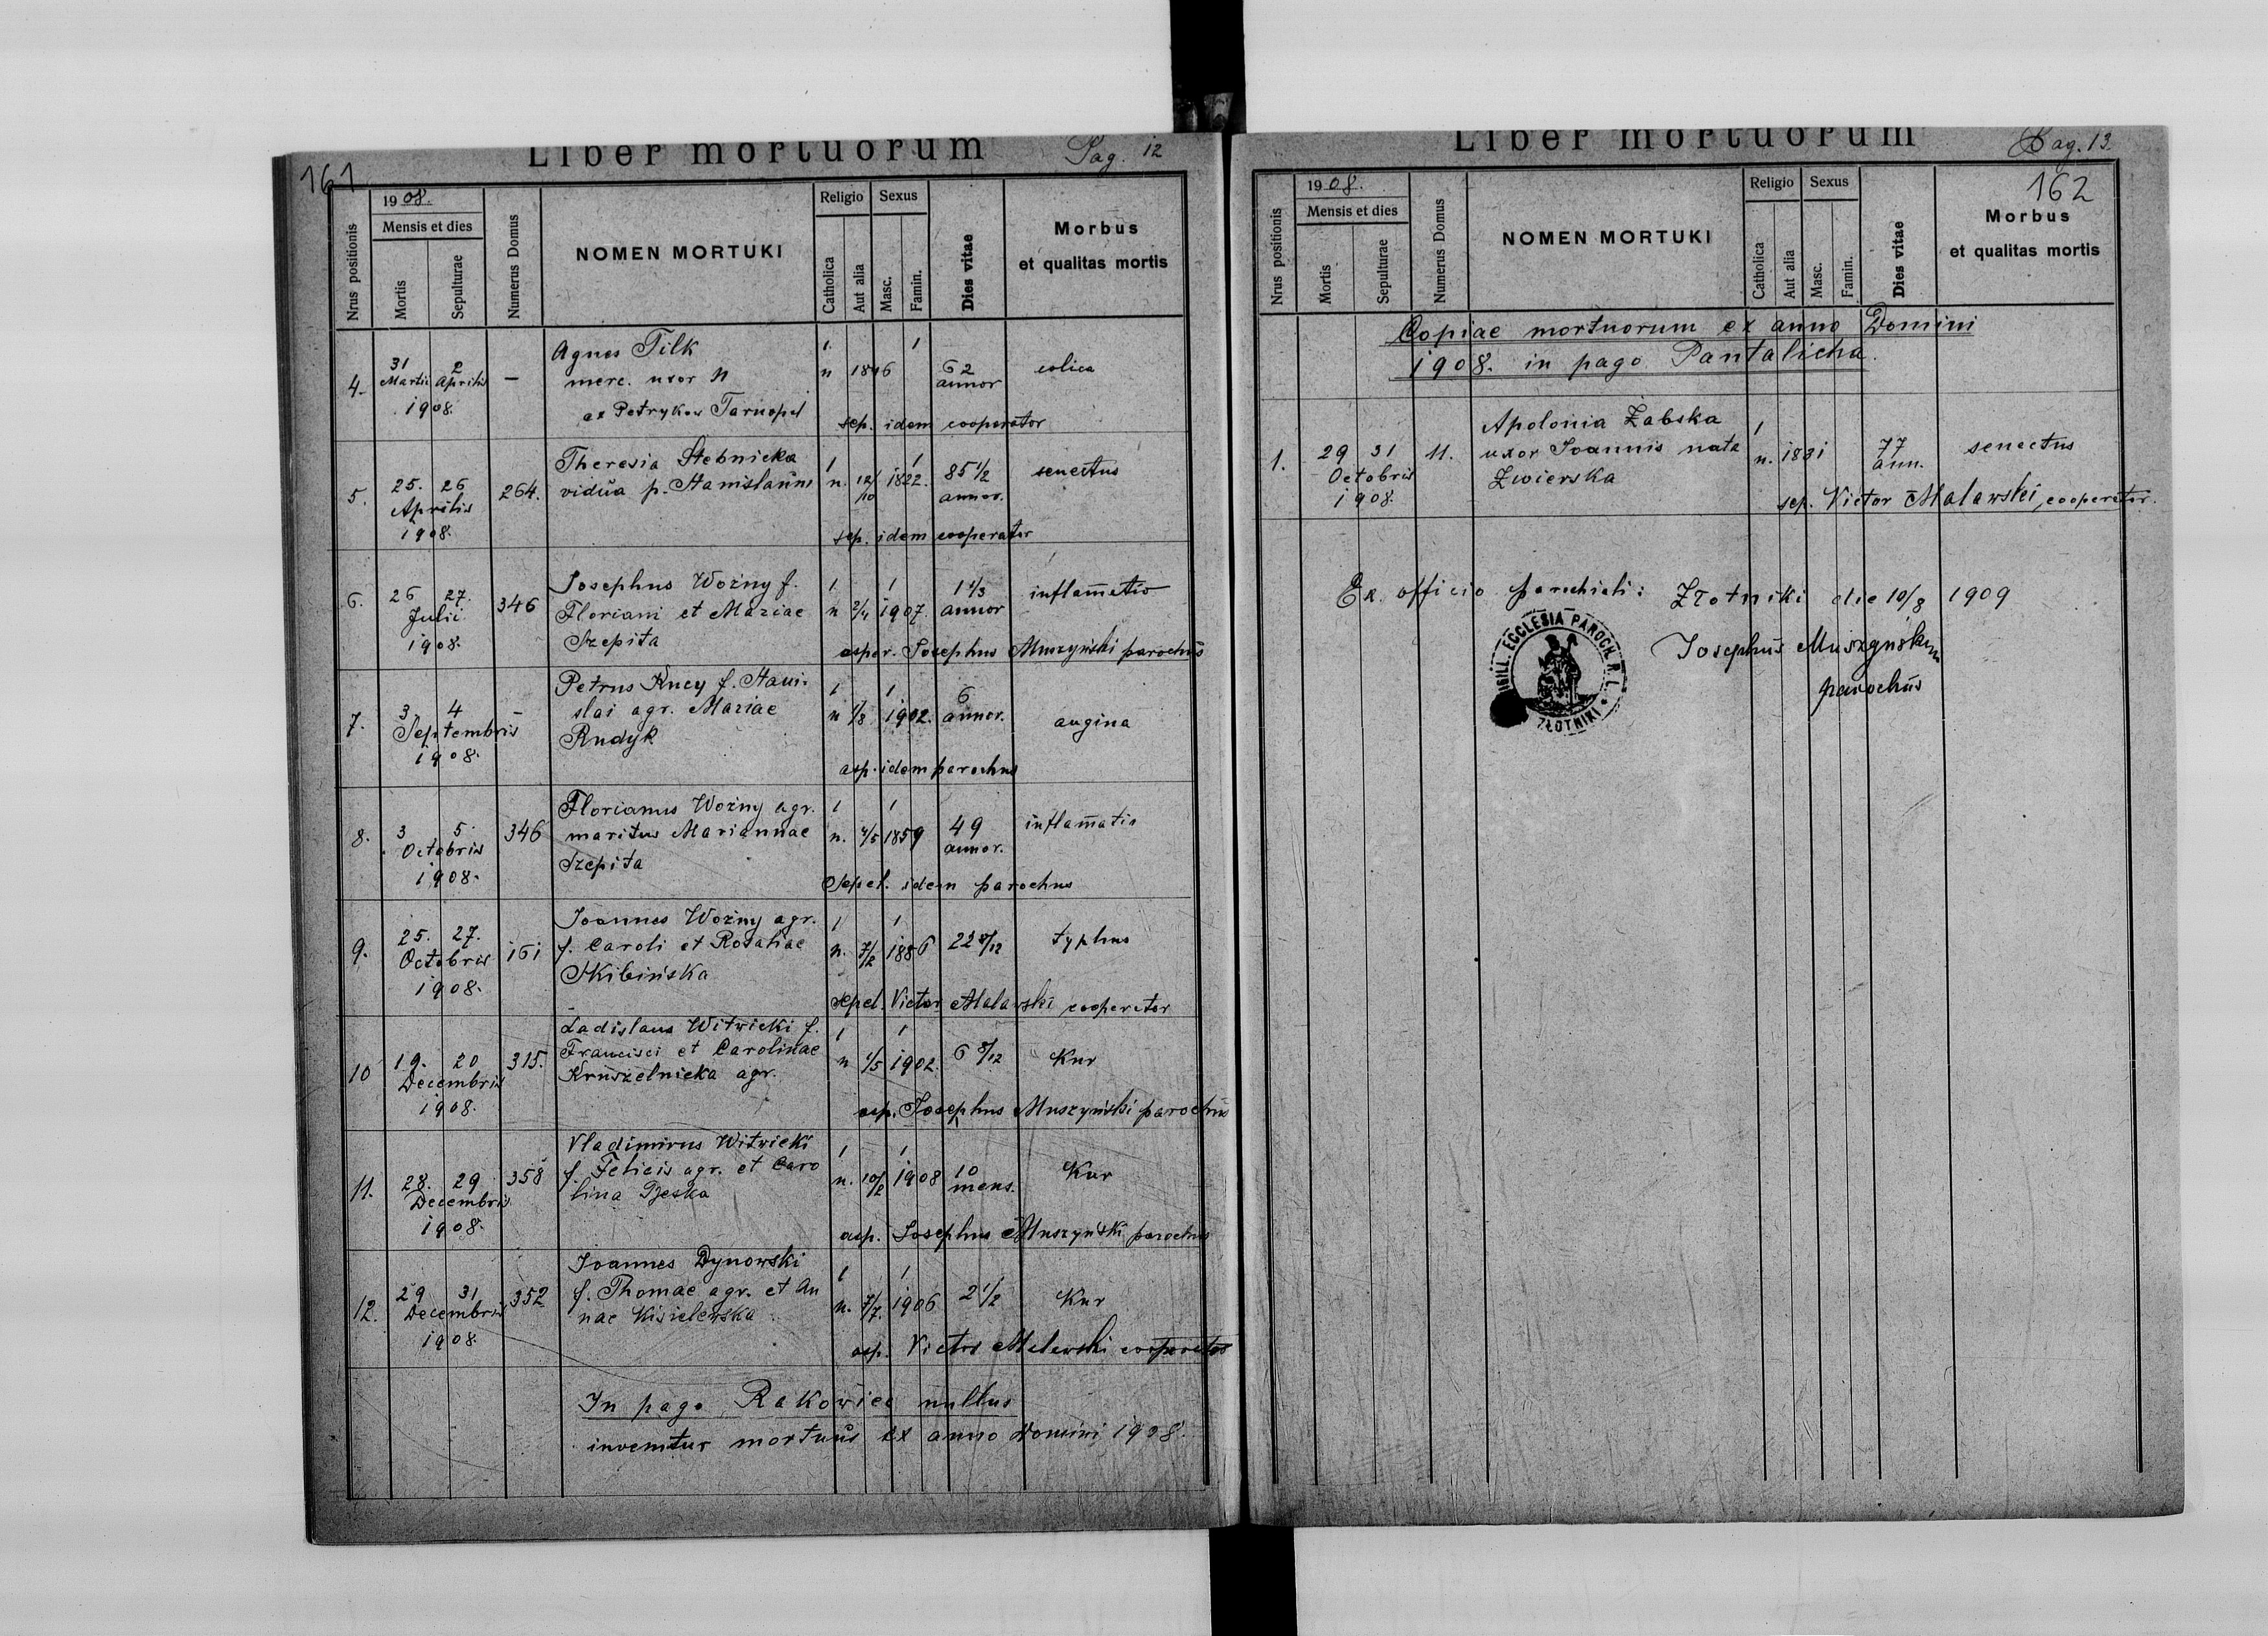 161
Liber mortuorum
Pag. 12
Nrus positionis
1908.
Mensis et dies
Mortis
Sepulturae
Numerus Domus
NOMEN MORTUKI
Religio
Catholica
Aut alia
Sexus
Masc.
Famin.
Dies vitae
Morbus
et qualitas mortis
4. 31 2 — Agnes Tilk 1 1
Martii Aprilis merc. uxor N n 1846 62 colica
1908. ex Petryków Tarnopol annor
sep. idem cooperator
5. 25. 26 264. Theresia Stebnicka 1 1
Aprilis vidua p. Stanislaum n. 12/10 1822. 85 1/2 senectus
1908. annor.
sep. idem cooperator
6. 26 27. 346 Josephus Woźny f. 1 1 1 1/3 inflamatio
Julii Floriani et Mariae n 2/4 1907. annor
1908. Szepita
asper. Josephus Muszyński parochus
7. 3 4 — Petrus Kucy f. Stani- 1 1 6
Septembris slai agr. Mariae n 1/8 1902. annor. angina
1908. Rudyk
asp. idem parochus
8. 3 5 346 Florianus Woźny agr. 1 1
Octobris maritus Mariannae n. 4/5 1859 49 inflamatio
1908. Szepita annor.
Sepel. idem parochus
9. 25. 27. 161 Joannes Woźny agr. 1 1
Octobris f. Caroli et Rosaliae n. 7/2 1886 22 8/12 typhus
1908. Skibińska
sepel. Victor Malawski cooperator
10 19. 20 315. Ladislaus Witwicki f. 1 1
Decembris Francisci et Carolinae n 4/5 1902. 6 8/12 Kur
1908. Kruszelnicka agr.
asp. Josephus Muszyński parochus
11. 28. 29 358 Vladimirus Witwicki 1 1
Decembris f. Felicis agr. et Caro n. 10/2 1908 10 Kur
1908. lina Bjeska mens.
asp. Josephus Muszyński parochus
12. 29 31 352 Joannes Dynowski 1 1
Decembris f. Thomae agr. et An n. 7/7. 1906 2 1/2 Kur
1908. nae Kisielewska
asp. Victor Malawski cooperator
In pago Rakowiec nullus
invenitur mortuus ex anno Domini 1908.
Liber mortuorum
Pag. 13.
162
Nrus positionis
1908.
Mensis et dies
Mortis
Sepulturae
Numerus Domus
NOMEN MORTUKI
Religio
Catholica
Aut alia
Sexus
Masc.
Famin.
Dies vitae
Morbus
et qualitas mortis
Copiae mortuorum ex anno Domini
1908. in pago Pantalicha.
1. 29 31 11. Apolonia Żabska 1
Octobris uxor Joannis nata n. 1831 77 senectus
1908. Zwierska ann.
sep. Victor Malawski, cooperator.
Ex officio parochiali: Złotniki die 10/8 1909
SIGILL. ECCLESIA PAROCH. R. L.
ZŁOTNIKI
Josephus Muszyński
parochus